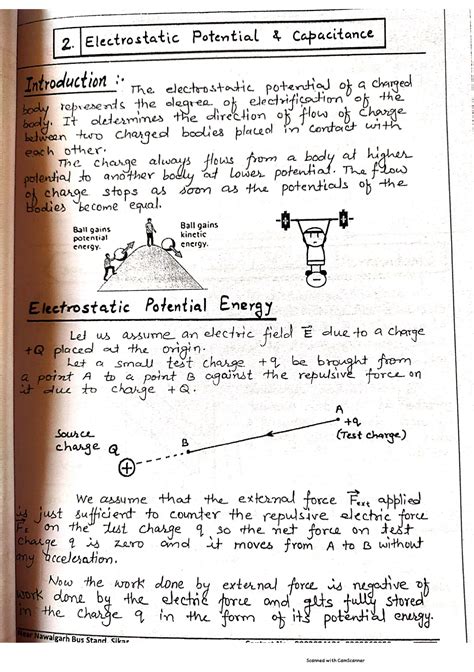 2. Electrostatic Potential & Capacitance
Introduction :-
The electrostatic potential of a charged
body represents the degree of electrification of the
body. It determines the direction of flow of charge
between two charged bodies placed in contact with
each other.
The charge always flows from a body at higher
potential to another body at lower potential. The flow
of charge stops as soon as the potentials of the
bodies become equal.
Ball gains
potential
energy.
Ball gains
kinetic
energy.
Electrostatic Potential Energy
Let us assume an electric field E⃗ due to a charge
+Q placed at the origin.
Let a small test charge +q be brought from
a point A to a point B against the repulsive force on
it due to charge +Q.
A
+q
(Test charge)
B
Source
charge Q
+
We assume that the external force F⃗ext applied
is just sufficient to counter the repulsive electric force
F⃗E on the test charge q so the net force on test
charge q is zero and it moves from A to B without
any acceleration.
Now the work done by external force is negative of
work done by the electric force and gets fully stored
in the charge q in the form of its potential energy.
Near Nawalgarh Bus Stand, Sikar
Scanned with CamScanner